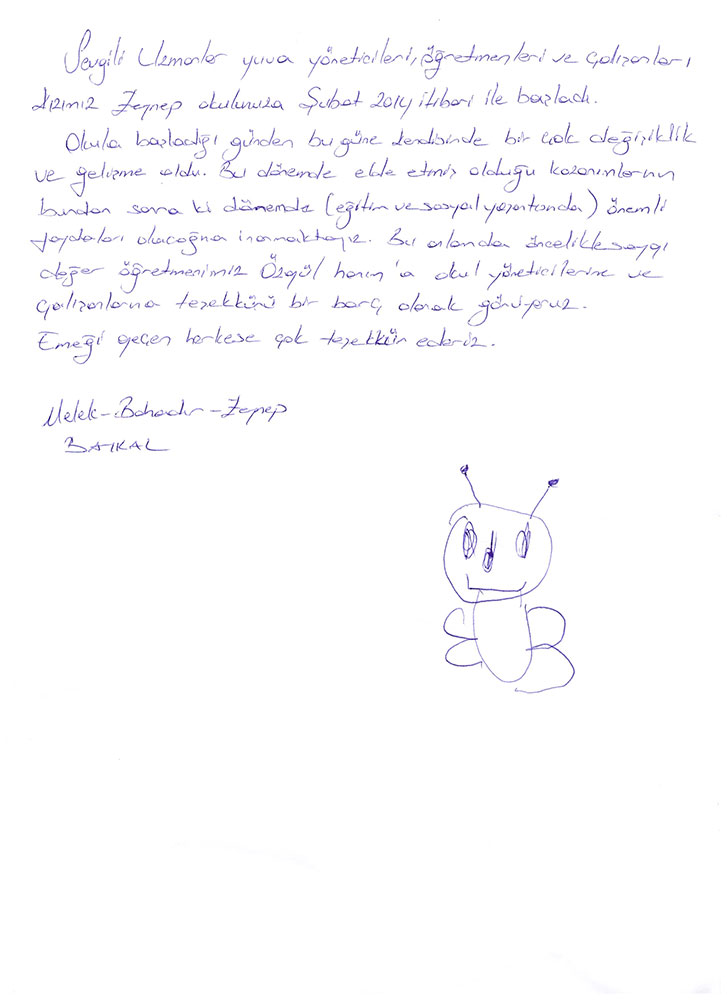 Sevgili Uzmanlar yuva yöneticileri, öğretmenleri ve çalışanları
Kızımız Zeynep okulunuza Şubat 2014 itibari ile başladı.
Okula başladığı günden bu güne kendisinde bir çok değişiklik
ve gelişme oldu. Bu dönemde elde etmiş olduğu kazanımlarının
bundan sonra ki dönemde (eğitim ve sosyal yaşantısında) önemli
faydaları olacağına inanmaktayız. Bu anlamda öncelikle saygı
değer öğretmenimiz Özgül hanım'a okul yöneticilerine ve
çalışanlarına teşekkürü bir borç olarak görüyoruz.
Emeği geçen herkese çok teşekkür ederiz.
Melek-Bahadır-Zeynep
BAYKAL